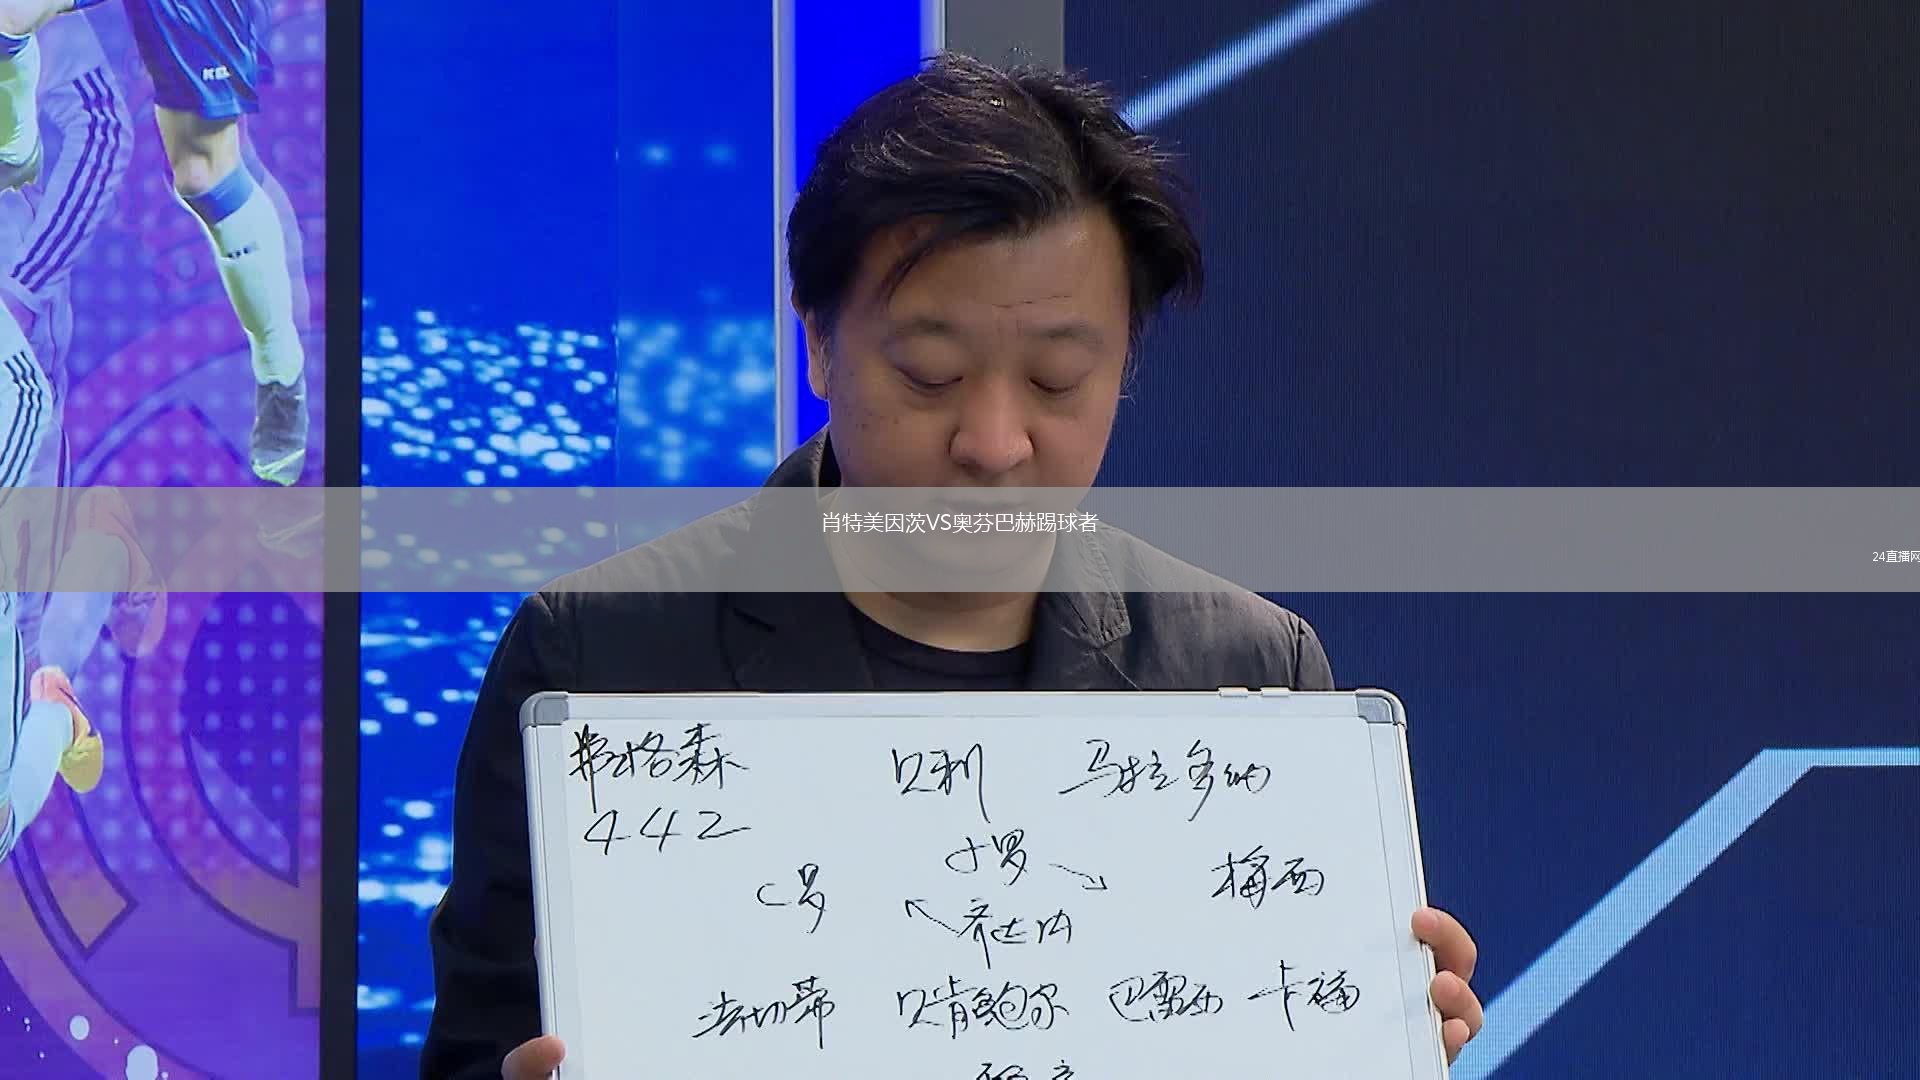 KEL
肖特美因茨VS奥芬巴赫踢球者
24直播网
弗格森 贝利 马拉多纳
442
小罗
C罗 梅西
齐达内
法切蒂 贝肯鲍尔 巴雷西 卡福